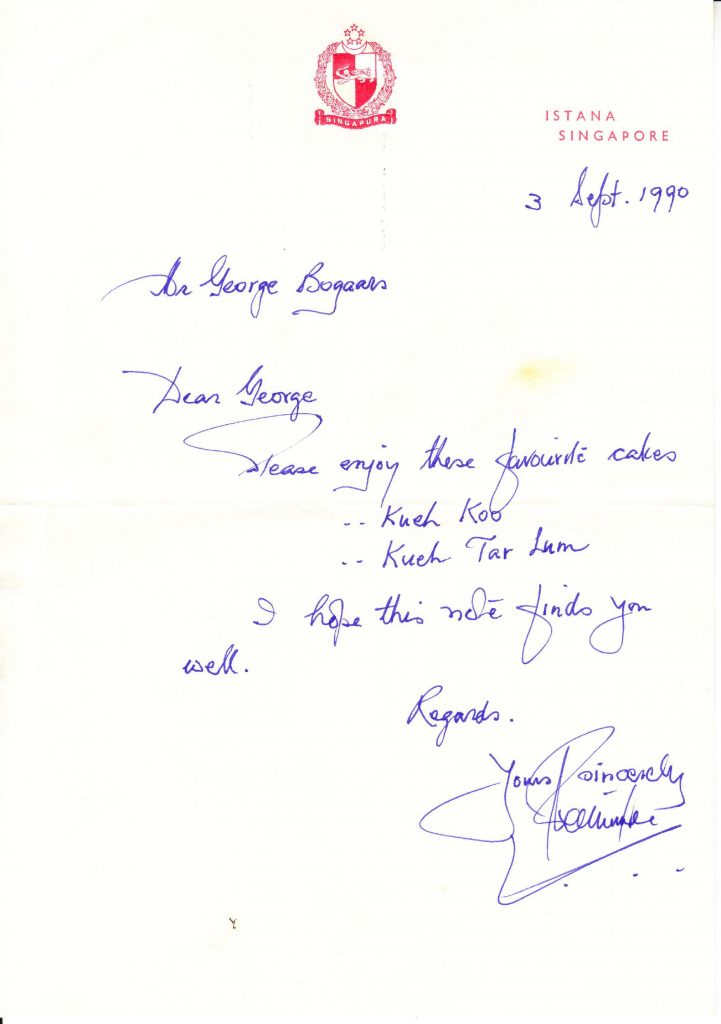 SINGAPURA
ISTANA
SINGAPORE
3 Sept. 1990
Mr George Bogaars
Dear George
Please enjoy these favourite cakes
.. Kueh Koo
.. Kueh Tar Lum
I hope this note finds you
well.
Regards.
Yours sincerely